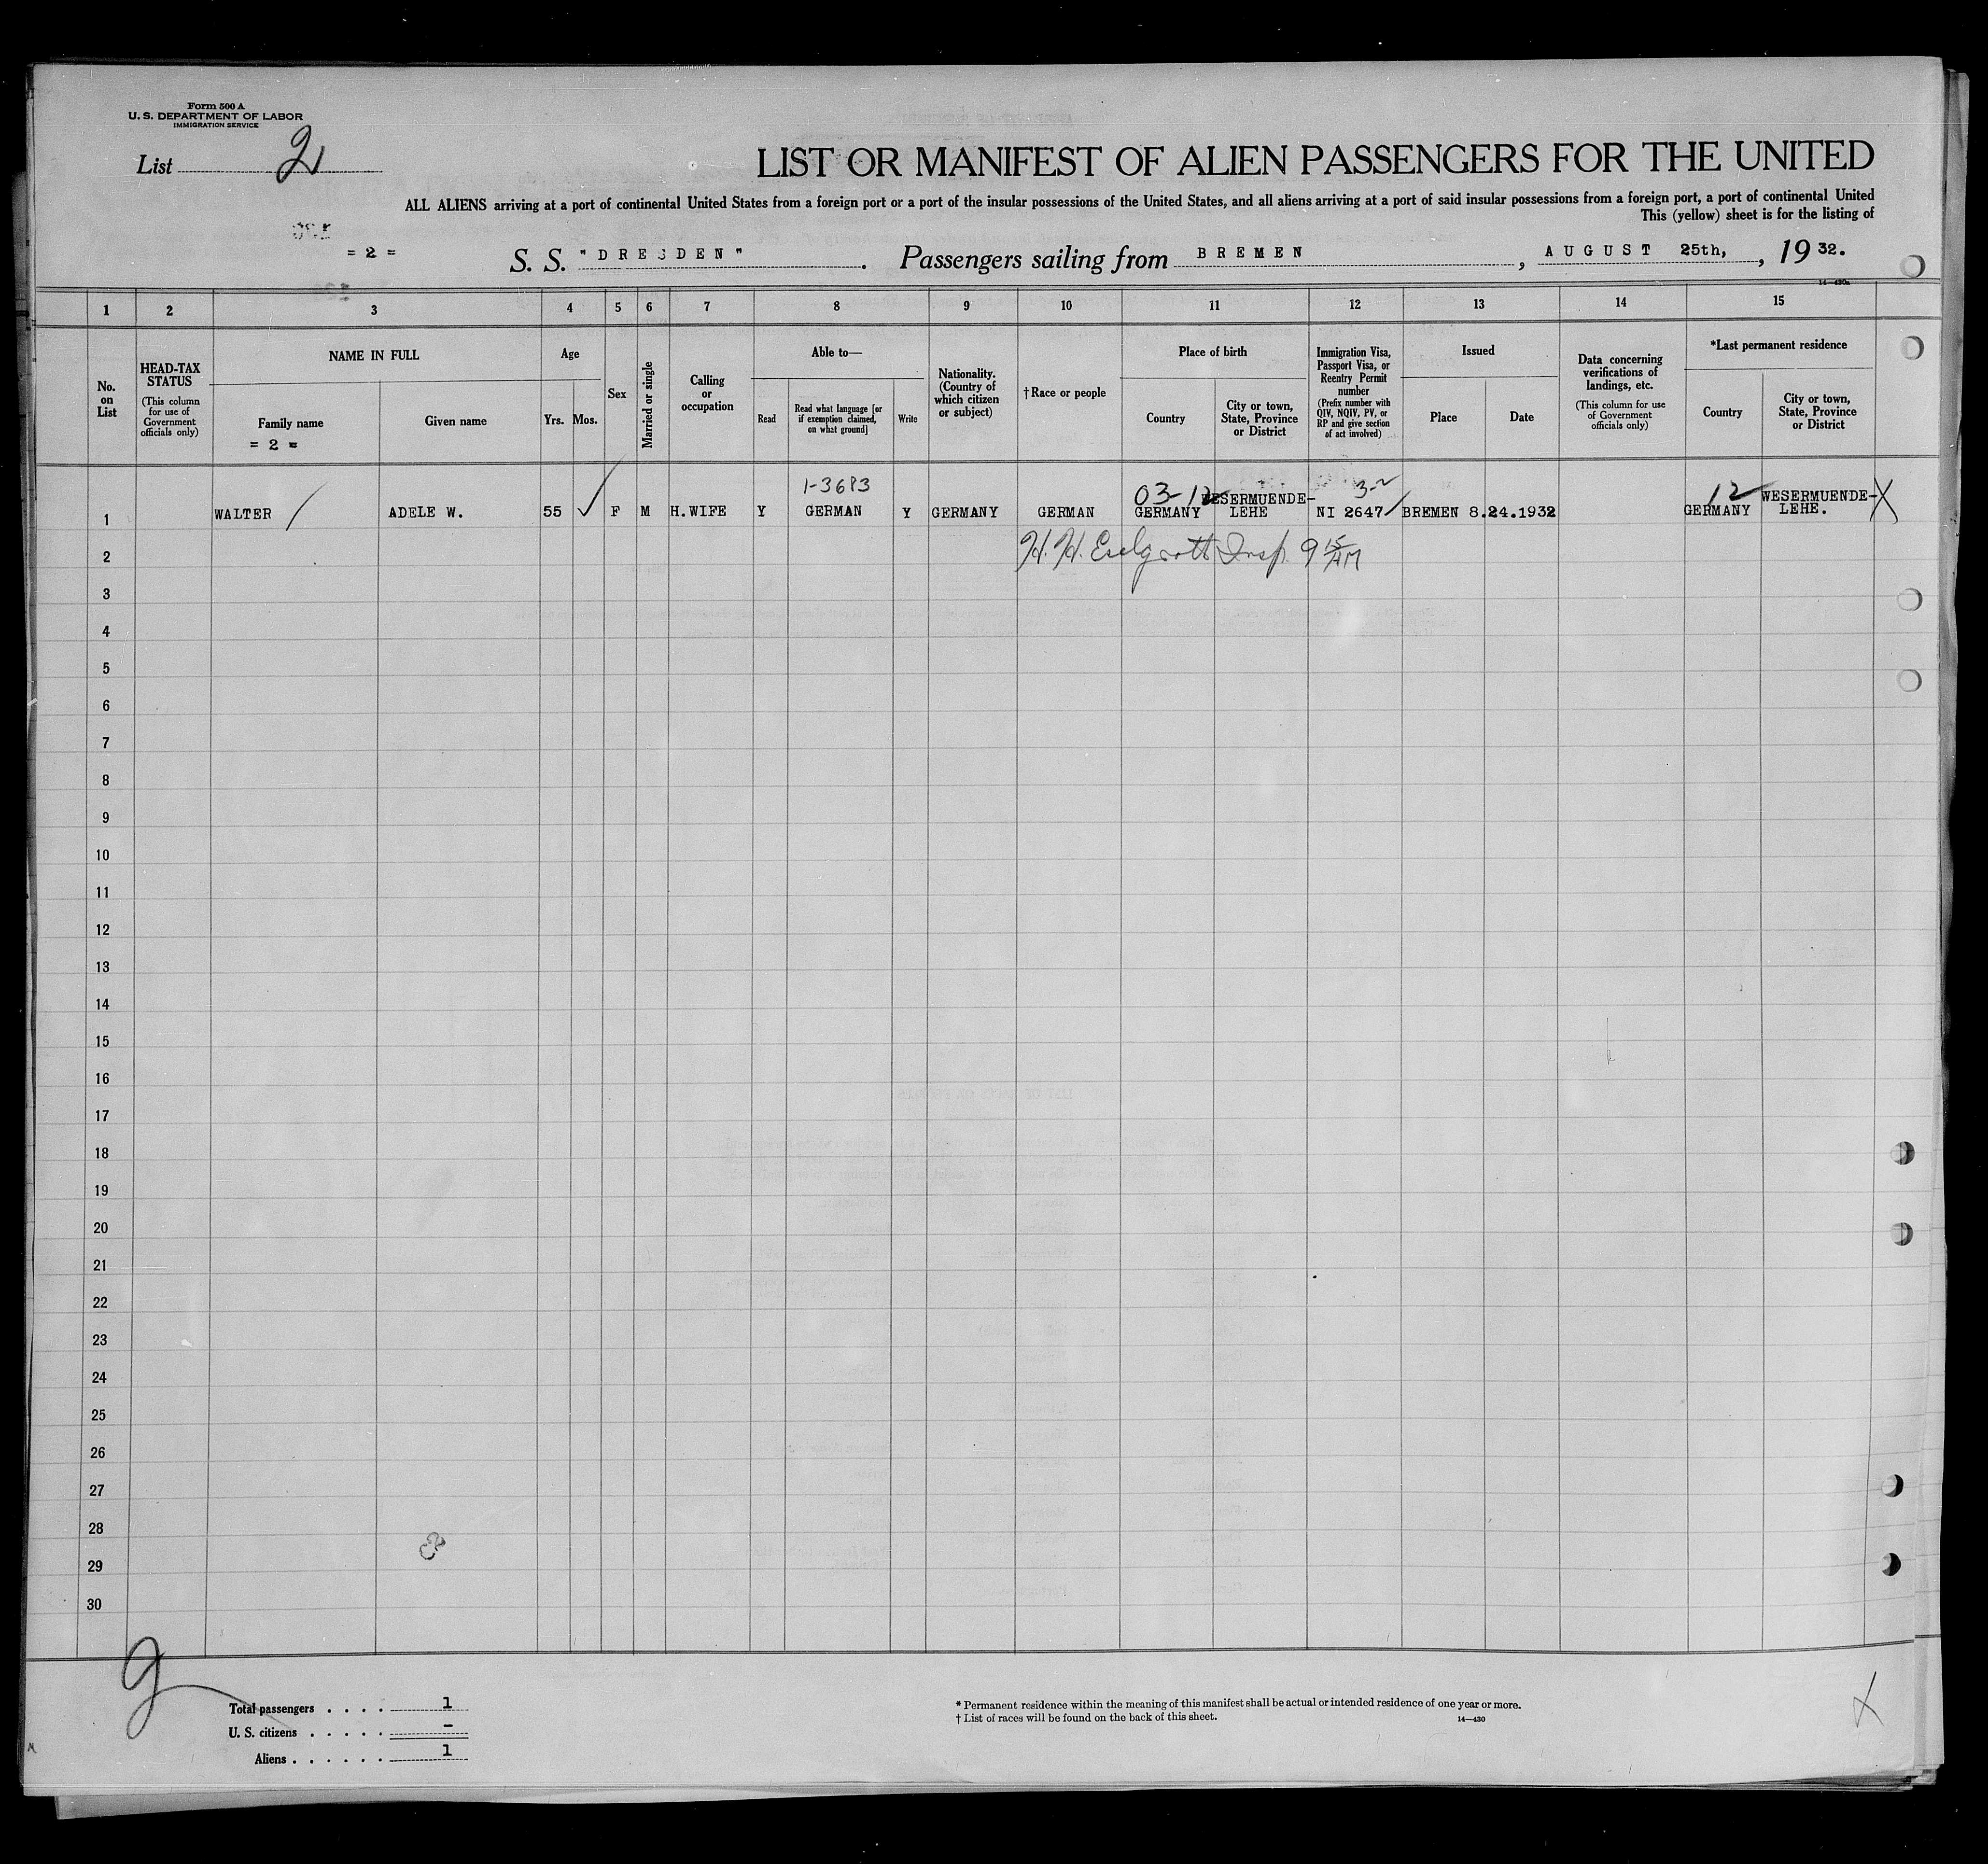 Form 500 A
U. S. DEPARTMENT OF LABOR
IMMIGRATION SERVICE
List 2
LIST OR MANIFEST OF ALIEN PASSENGERS FOR THE UNITED
ALL ALIENS arriving at a port of continental United States from a foreign port or a port of the insular possessions of the United States, and all aliens arriving at a port of said insular possessions from a foreign port, a port of continental United
This (yellow) sheet is for the listing of
= 2 =
S. S. "DRESDEN". Passengers sailing from BREMEN, AUGUST 25th, 1932.
14—430a
1 2 3 4 5 6 7 8 9 10 11 12 13 14 15
No. on List
HEAD-TAX STATUS
(This column for use of Government officials only)
NAME IN FULL
Family name
= 2 =
Given name
Age
Yrs. Mos.
Sex
Married or single
Calling or occupation
Able to—
Read
Read what language [or if exemption claimed, on what ground]
Write
Nationality. (Country of which citizen or subject)
†Race or people
Place of birth
Country
City or town, State, Province or District
Immigration Visa, Passport Visa, or Reentry Permit number
(Prefix number with QIV, NQIV, PV, or RP and give section of act involved)
Issued
Place
Date
Data concerning verifications of landings, etc.
(This column for use of Government officials only)
*Last permanent residence
Country
City or town, State, Province or District
1-3683 03-12 3-2 12
1 WALTER ADELE W. 55 F M H.WIFE Y GERMAN Y GERMANY GERMAN GERMANY WESERMUENDE-LEHE NI 2647 BREMEN 8.24.1932 GERMANY WESERMUENDE-LEHE. X
2 H. H. Insp. 9 15 AM
3
4
5
6
7
8
9
10
11
12
13
14
15
16
17
18
19
20
21
22
23
24
25
26
27
28
29
30
Total passengers . . . . 1
U. S. citizens . . . . . –
Aliens . . . . . . 1
* Permanent residence within the meaning of this manifest shall be actual or intended residence of one year or more.
† List of races will be found on the back of this sheet.
14—430
X